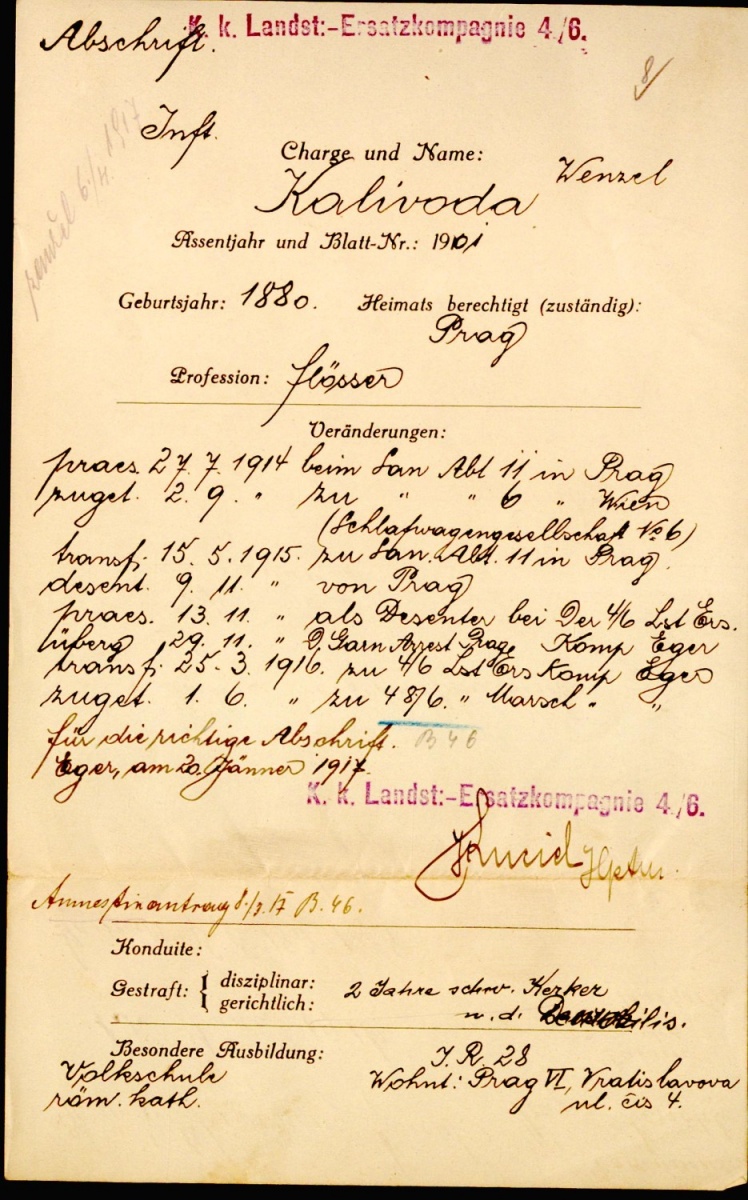 K. k. Landst:-Ersatzkompagnie 4./6.
Abschrift.
8/
6/4. 1917
Inft.
Charge und Name: Wenzel
Kalivoda
Assentjahr und Blatt-Nr.: 1901
Geburtsjahr: 1880. Heimats berechtigt (zuständig):
Prag
Profession: flösser
Veränderungen:
praes. 27. 7. 1914 beim San Abt 11 in Prag
zuget. 2. 9. " zu " " 6 " Wien
(Schlafwagengesellschaft No 6)
transf. 15. 5. 1915. zu San. Abt. 11 in Prag.
desent. 9. 11. " von Prag
praes. 13. 11. " als Desenter bei Der 4/6 Lst Ers.
überg 29. 11. " D. Garn Arrest Prag Komp Eger
transf. 25. 3. 1916. zu 4/6 Lst Ers Komp Eger
zuget. 1. 6. " zu 48/6. " Marsch " "
für die richtige Abschrift. B 46
Eger, am 20. Jänner 1917.
K. k. Landst:-Ersatzkompagnie 4./6.
Hptm.
Amnestieantrag 8./3. 17 B. 46.
Konduite:
Gestraft: { disziplinar:
gerichtlich: 2 Jahre schw. Kerker
n. d.
Besondere Ausbildung: I. R. 28
Volkschule Wohnt: Prag VI, Vratislavova
röm. kath. ul. čis 4.